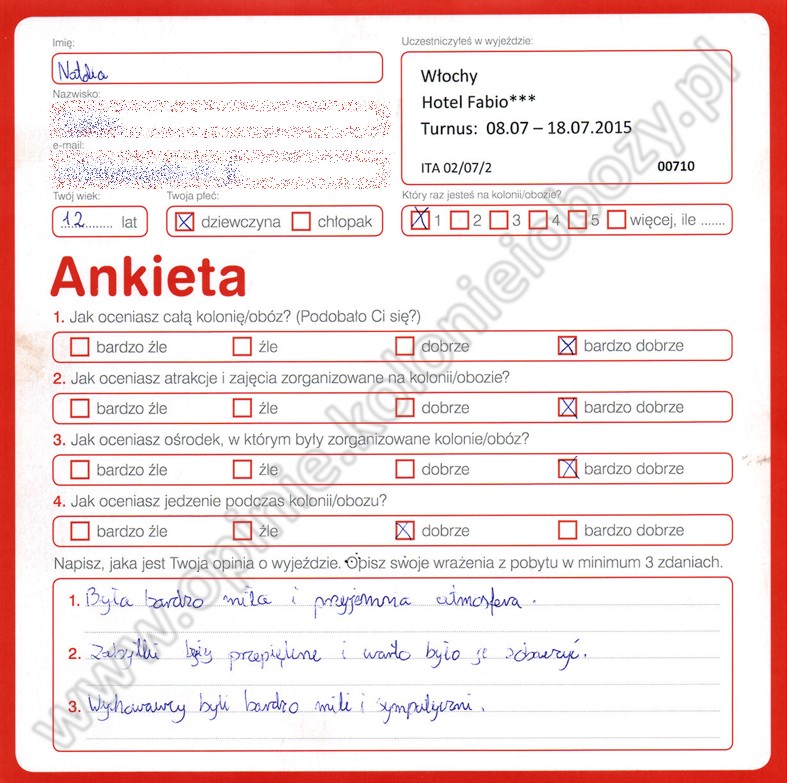 Imię:
Natalia
Uczestniczyłeś w wyjeździe:
Włochy
Hotel Fabio***
Turnus: 08.07 – 18.07.2015
ITA 02/07/2 00710
Nazwisko:
e-mail:
Twój wiek:
12 lat
Twoja płeć:
dziewczyna chłopak
Który raz jesteś na kolonii/obozie?
1 2 3 4 5 więcej, ile .......
Ankieta
1. Jak oceniasz całą kolonię/obóz? (Podobało Ci się?)
bardzo źle źle dobrze bardzo dobrze
2. Jak oceniasz atrakcje i zajęcia zorganizowane na kolonii/obozie?
bardzo źle źle dobrze bardzo dobrze
3. Jak oceniasz ośrodek, w którym były zorganizowane kolonie/obóz?
bardzo źle źle dobrze bardzo dobrze
4. Jak oceniasz jedzenie podczas kolonii/obozu?
bardzo źle źle dobrze bardzo dobrze
Napisz, jaka jest Twoja opinia o wyjeździe. Opisz swoje wrażenia z pobytu w minimum 3 zdaniach.
1. Była bardzo miła i przyjemna atmosfera.
2. Zabytki były przepiękne i warto było je zobaczyć.
3. Wychowawcy byli bardzo mili i sympatyczni.
www.opinie.kolonieiobozy.pl